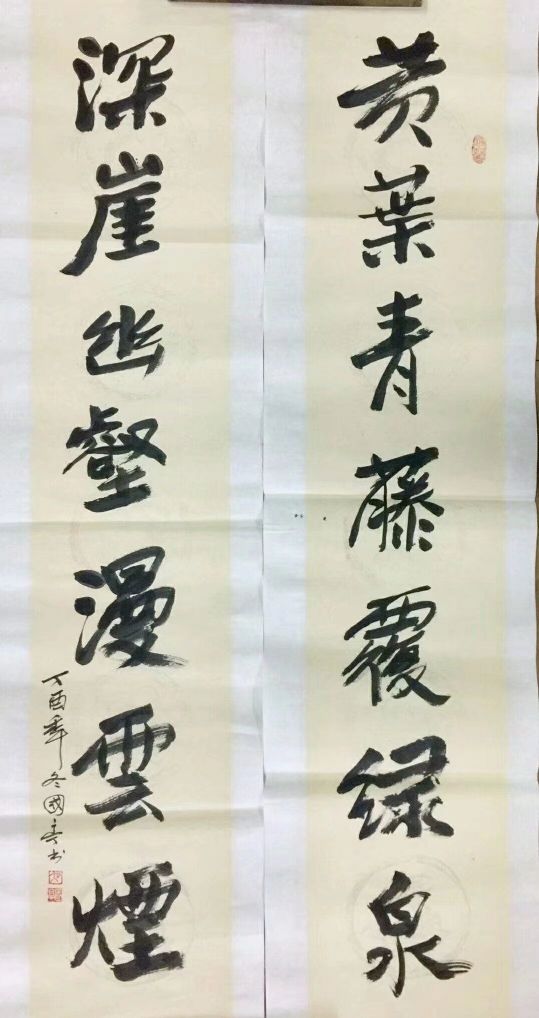 黄葉青藤覆绿泉
深崖幽壑漫雲煙
丁酉年冬國